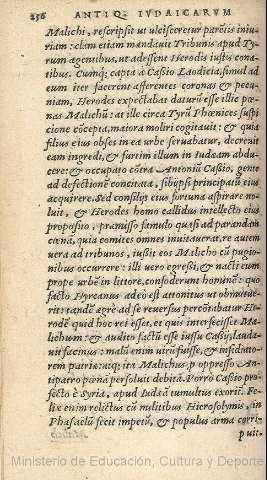 256 ANTIQ. IVDAICARVM
Malichi, rescripsit ut ulcisceretur parẽtis iniu-
riam: clam etiam mandauit Tribunis apud Ty-
rum agentibus, ut adessent Herodis iustis cona-
tibus. Cumq; capta à Caßio Laodicia, simul ad
eum iter facerent afferentes coronas & pecu-
niam, Herodes expectabat daturũ esse illic pœ-
nas Malichũ: at ille circa Tyrũ Phœnices suspi
cione cõcepta, maiora moliri cogitauit: & quia
filius eius obses in ea urbe seruabatur, decreuit
eam ingredi, & furtim illum in Iudæam abdu-
cere: & occupato cõtra Antoniũ Caßio, gente
ad defectionẽ concitata, sibijpsi principatũ eius
acquirere. Sed consilijs eius fortuna aspirare no
luit, & Herodes homo callidus intellecto eius
proposito, præmisso famulo quasi ad parandam
cœnã, quia comites omnes inuitauerat, re autem
uera ad tribunos, iußit eos Malicho cũ pugio-
nibus occurrere: illi uero egreßi, & nacti eum
prope urbẽ in littore, confoderunt hominẽ: quo
facto Hyrcanus adeò est attonitus ut obmutue-
rit: tandẽ ægrè ad se reuersus percõtabatur He
rodẽ quid hoc rei esset, et quis interfecisset Ma-
lichum: & audito factũ esse iussu Caßij, lauda-
uit facinus: malũ enim uirũ fuisse, & insidiato-
rem patriæ: atq; ita Malichus p oppresso An-
tipatro pœnã persoluit debitã. Porrò Caßio pro
fecto è Syria, apud Iudæã tumultus exorit. Fe-
lix enim relictus cũ militibus Hierosolymis, in
Phasaelũ fecit impetũ, & populus arma corri-
puit.
Ministerio de Educación, Cultura y Deporte